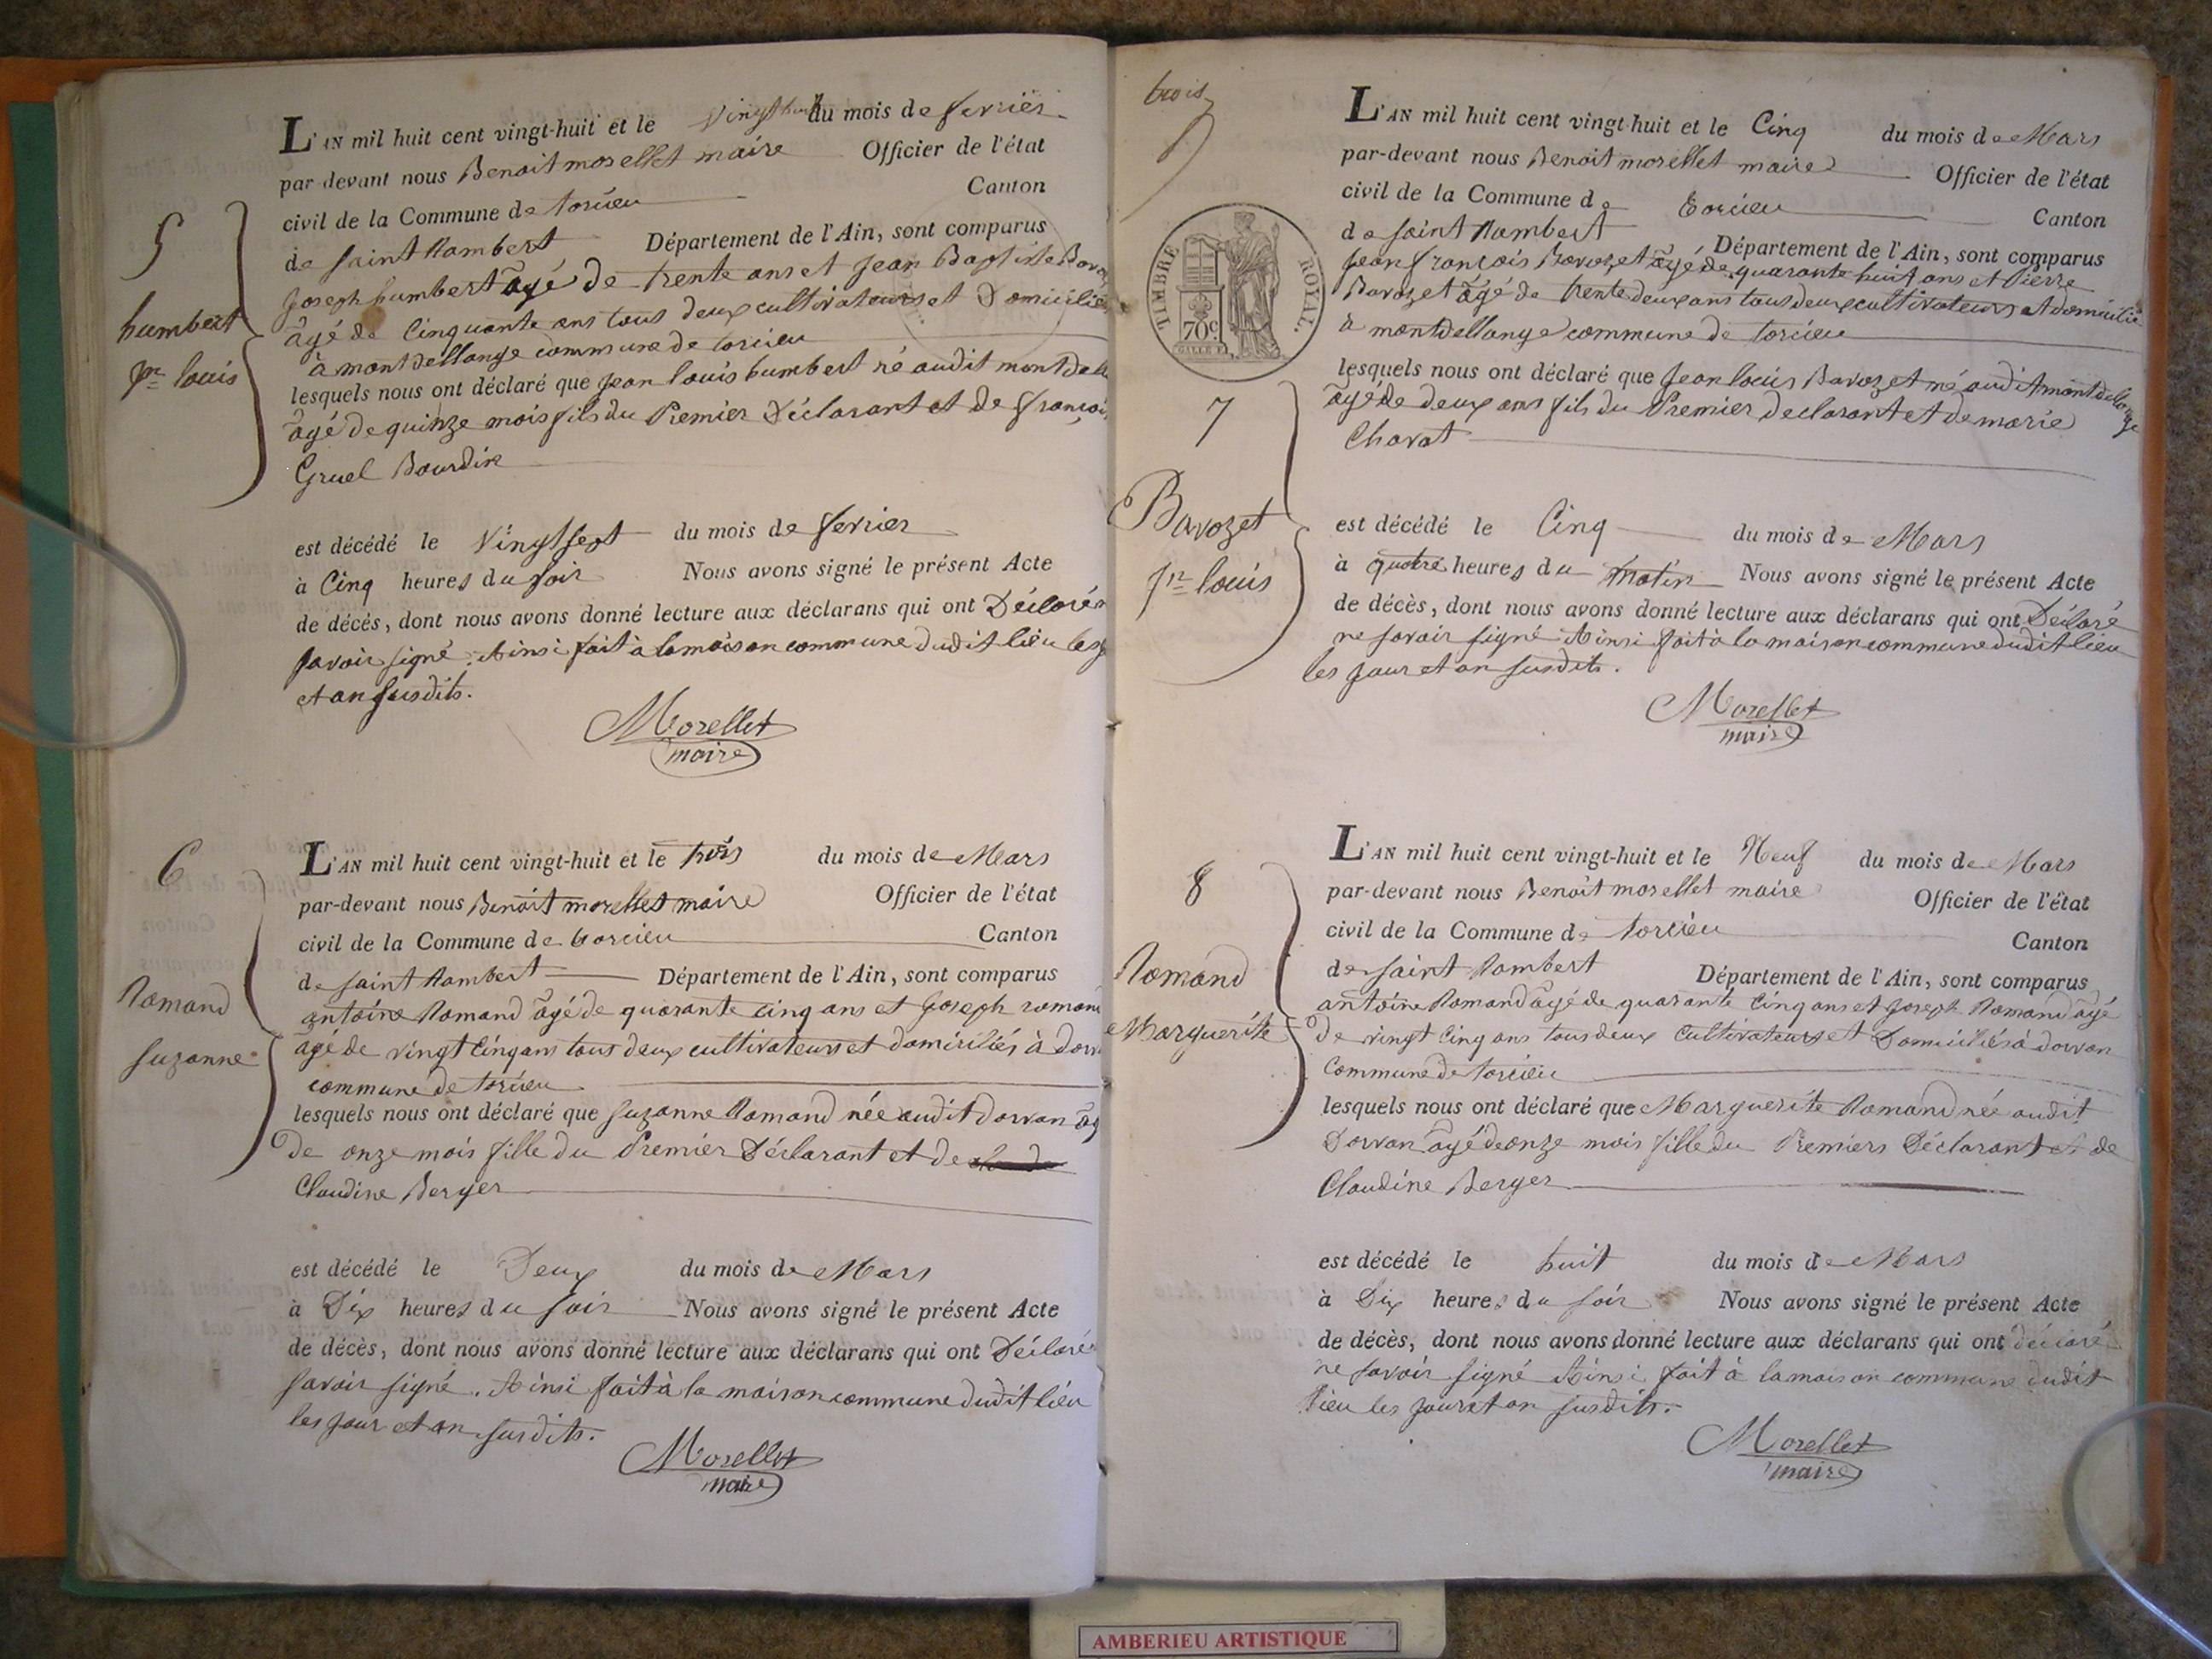 5
humbert
jn louis
L'AN mil huit cent vingt-huit et le vingt huit du mois de fevrier
par-devant nous Benoit morellet maire Officier de l'état
civil de la Commune de torcieu Canton
de saint Rambert Département de l'Ain, sont comparus
joseph humbert âgé de trente ans et jean Baptiste
âgé de Cinquante ans tous deux cultivateurs et Domiciliés
à montdellange commune de torcieu
lesquels nous ont déclaré que jean louis humbert né audit
âgé de quinze mois fils du Premier Déclarant et de
Gruel Bourdin
est décédé le Vingt sept du mois de fevrier
à Cinq heures du soir Nous avons signé le présent Acte
de décès, dont nous avons donné lecture aux déclarans qui ont Déclaré
savoir signé. Ainsi fait à la maison commune dudit lieu les
et an susdits.
Morellet
maire
6
Romand
suzanne
L'AN mil huit cent vingt-huit et le trois du mois de Mars
par-devant nous Benoit morellet maire Officier de l'état
civil de la Commune de torcieu Canton
de saint Rambert Département de l'Ain, sont comparus
antoine Romand âgé de quarante cinq ans et joseph romand
âgé de vingt Cinq ans tous deux cultivateurs et domiciliés à
commune de torcieu
lesquels nous ont déclaré que suzanne Romand née audit dorvan
De onze mois fille du Premier Déclarant et de
Claudine Berger
est décédé le Deux du mois de Mars
à Dix heures du soir Nous avons signé le présent Acte
de décès, dont nous avons donné lecture aux déclarans qui ont Déclaré
savoir signé. Ainsi fait à la maison commune dudit lieu
les jour et an susdits.
Morellet
maire
trois
TIMBRE ROYAL.
70c.
7
Bavozet
jn louis
L'AN mil huit cent vingt-huit et le Cinq du mois de Mars
par-devant nous Benoit morellet maire Officier de l'état
civil de la Commune de torcieu Canton
de saint Rambert Département de l'Ain, sont comparus
jean françois Bavozet âgé de quarante huit ans et Pierre
Bavozet âgé de trente deux ans tous deux cultivateurs et domiciliés
à montdellange commune de torcieu
lesquels nous ont déclaré que jean louis Bavozet né audit montdelange
âgé de deux ans fils du Premier declarant et de marie
Chavat
est décédé le Cinq du mois de Mars
à quatre heures du matin Nous avons signé le présent Acte
de décès, dont nous avons donné lecture aux déclarans qui ont Déclaré
ne savoir signé Ainsi fait à la maison commune dudit lieu
les jour et an susdits.
Morellet
maire
8
Romand
Marguerite
L'AN mil huit cent vingt-huit et le Neuf du mois de Mars
par-devant nous Benoit morellet maire Officier de l'état
civil de la Commune de torcieu Canton
de saint Rambert Département de l'Ain, sont comparus
antoine Romand âgé de quarante Cinq ans et joseph Romand âgé
de vingt Cinq ans tous deux cultivateurs et Domiciliés à dorvan
Commune de torcieu
lesquels nous ont déclaré que Marguerite Romand née audit
Dorvan âgé de onze mois fille du Premiers Déclarant et de
Claudine Berger
est décédé le huit du mois de Mars
à Dix heures du soir Nous avons signé le présent Acte
de décès, dont nous avons donné lecture aux déclarans qui ont déclaré
ne savoir signé Ainsi fait à la maison commune dudit
lieu les jour et an susdits.
Morellet
maire
AMBERIEU ARTISTIQUE